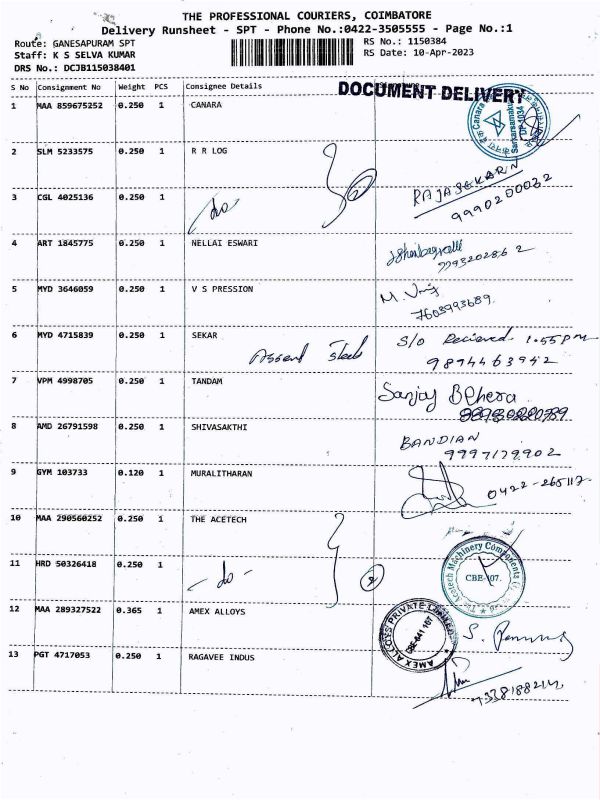 THE PROFESSIONAL COURIERS, COIMBATORE
Delivery Runsheet - SPT - Phone No.:0422-3505555 - Page No.:1
Route: GANESAPURAM SPT
RS No.: 1150384
Staff: K S SELVA KUMAR
RS Date: 10-Apr-2023
DRS No.: DCJB115038401
S No Consignment No Weight PCS Consignee Details
DOCUMENT DELIVERY
1 MAA 859675252 0.250 1 CANARA
Canara
DP-1034
2 SLM 5233575 0.250 1 R R LOG
RAJASEKARAN
9990200032
3 CGL 4025136 0.250 1 do
4 ART 1845775 0.250 1 NELLAI ESWARI
5 MYD 3646059 0.250 1 V S PRESSION
7603993689
6 MYD 4715839 0.250 1 SEKAR
S/o Recieved 1.55pm
Assent Steels
9894463942
7 VPM 4998705 0.250 1 TANDAM
Sanjay Behera
8 AMD 26791598 0.250 1 SHIVASAKTHI
BANDIAN
9997179902
9 GYM 103733 0.120 1 MURALITHARAN
0422-265117
10 MAA 290560252 0.250 1 THE ACETECH
Acetech Machinery Components
CBE-107.
11 HRD 50326418 0.250 1 - do - 2
12 MAA 289327522 0.365 1 AMEX ALLOYS
AMEX ALLOYS PRIVATE LIMITED
CBE-641 107
13 PGT 4717053 0.250 1 RAGAVEE INDUS